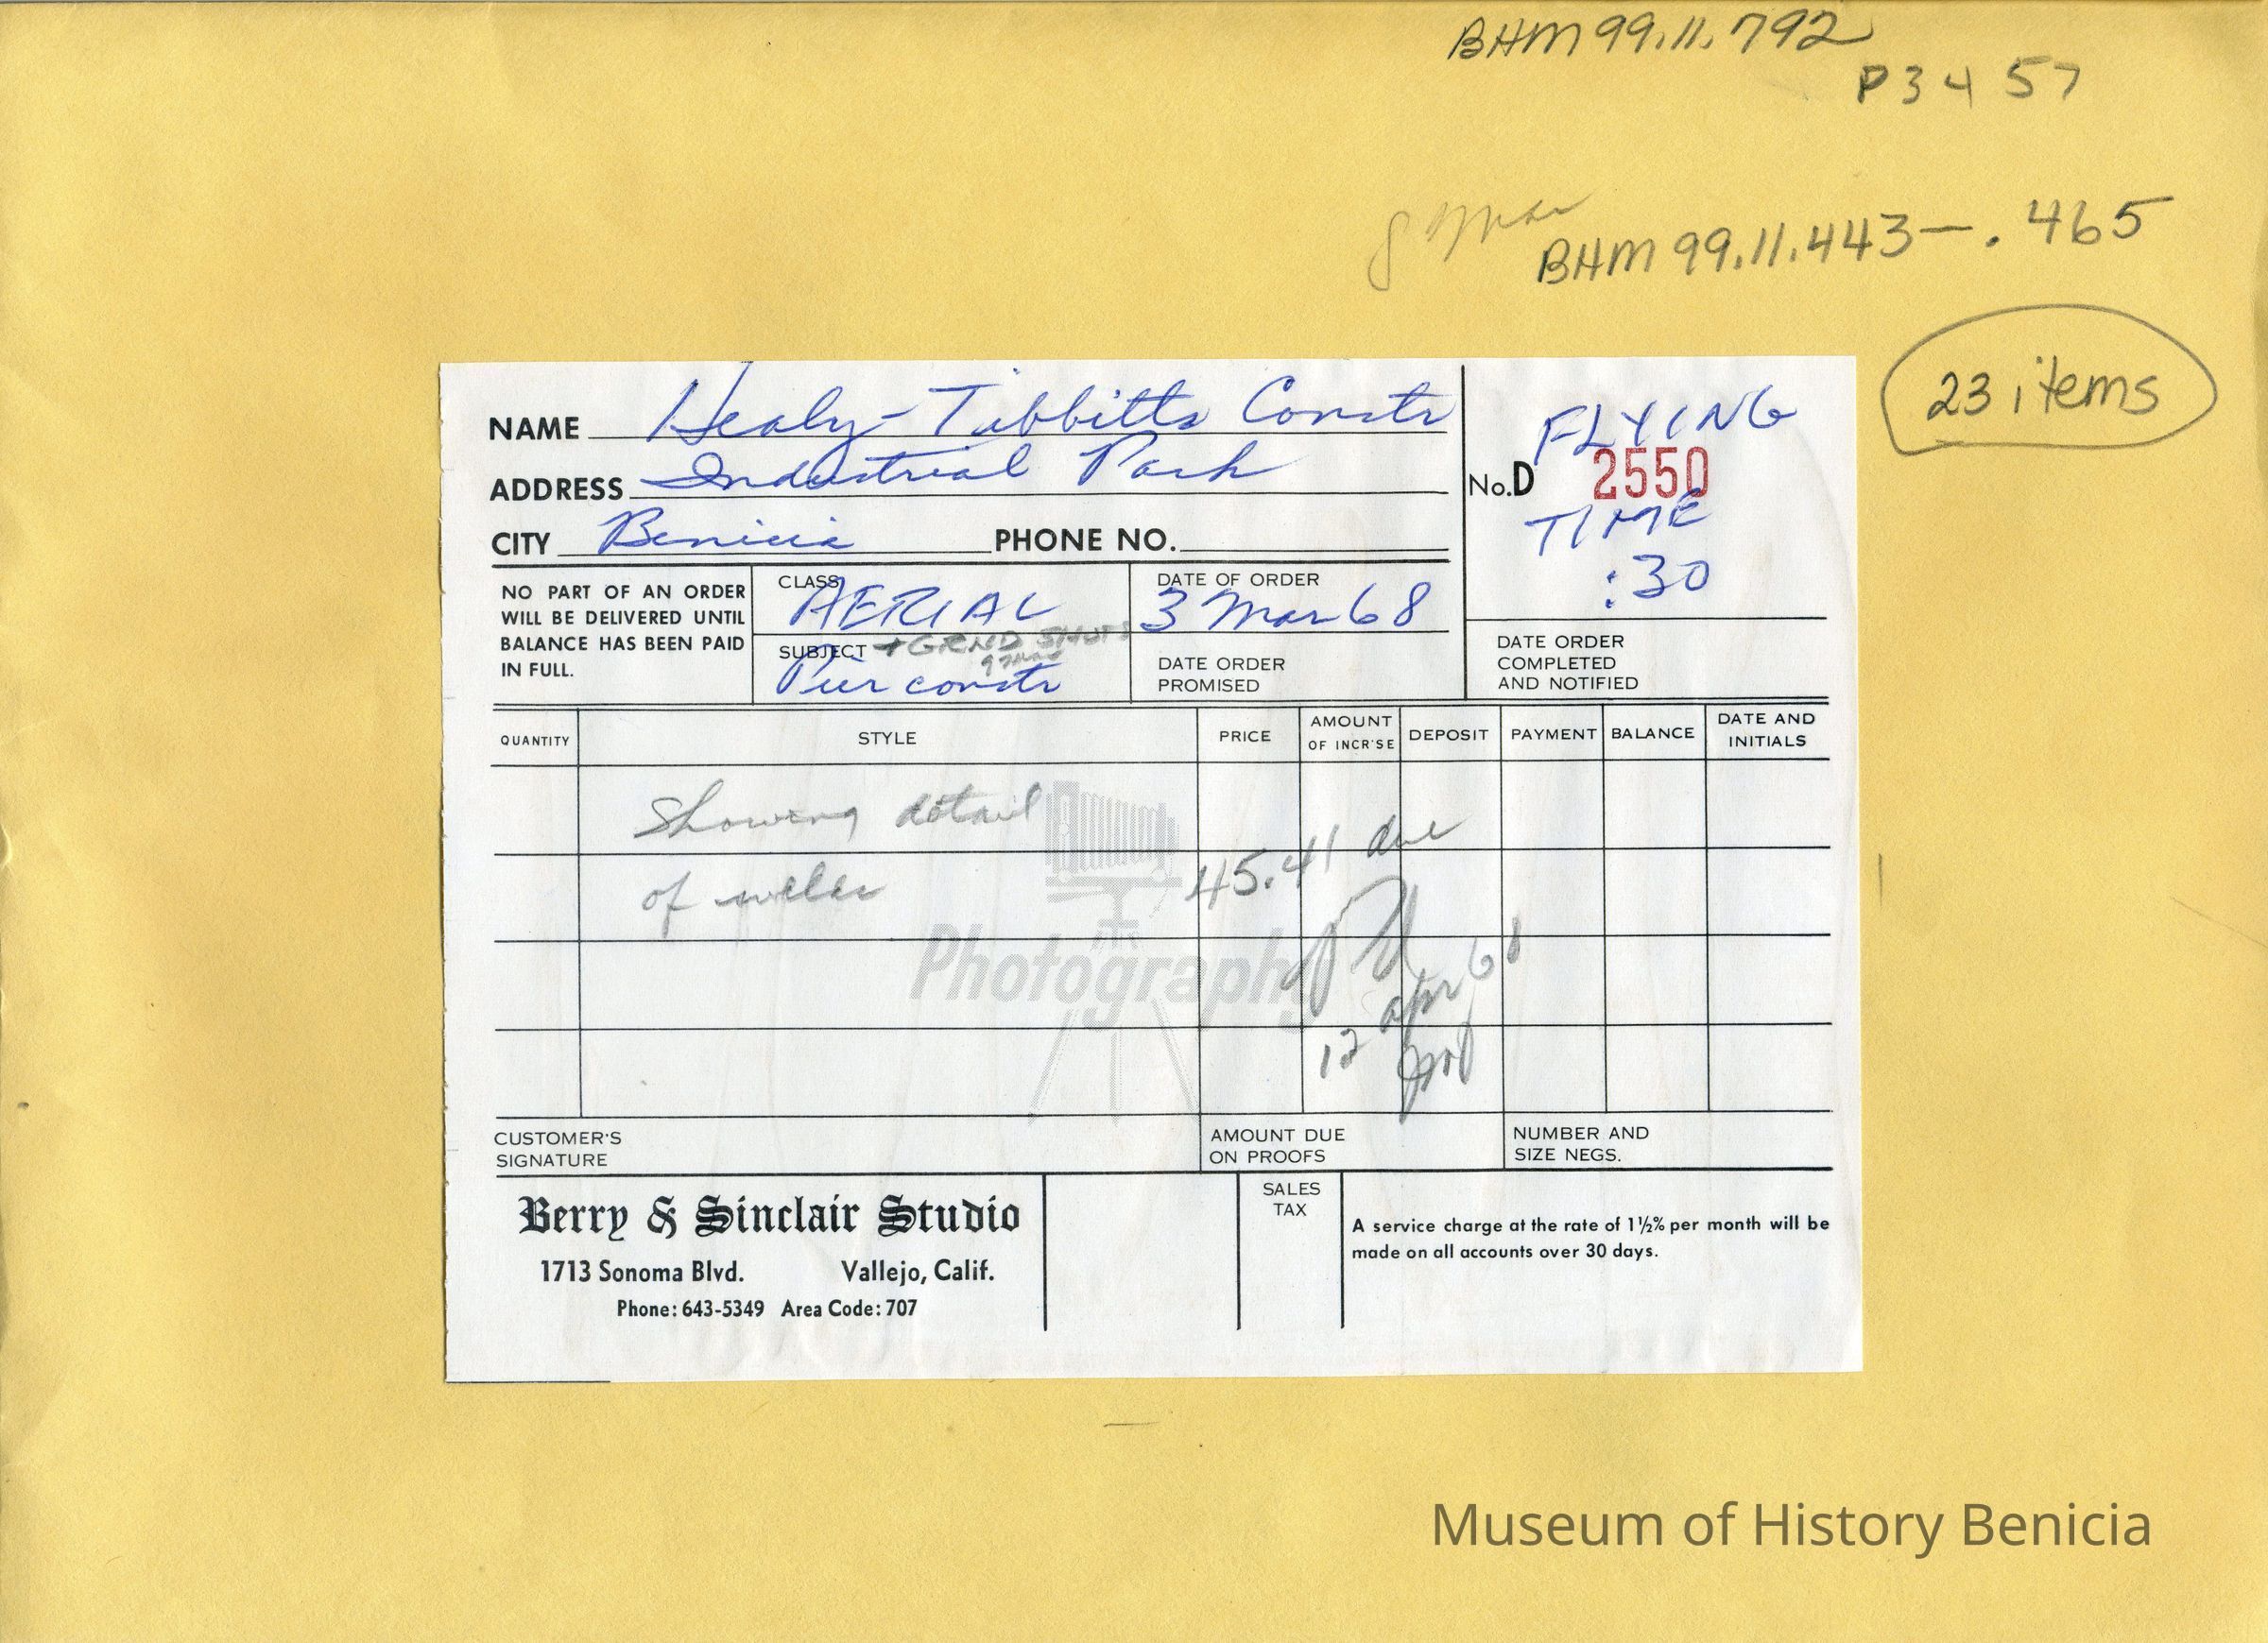 BHM 99.11.792
P3457
BHM 99.11.443—.465
23 items
NAME Healy-Tibbitts Constr
ADDRESS Industrial Park
CITY Benicia PHONE NO.
FLYING
No.D 2550
TIME
:30
NO PART OF AN ORDER
WILL BE DELIVERED UNTIL
BALANCE HAS BEEN PAID
IN FULL.
CLASS
AERIAL
+ GRND SHOTS
SUBJECT
Pier constr
DATE OF ORDER
3 Mar 68
DATE ORDER
PROMISED
DATE ORDER
COMPLETED
AND NOTIFIED
QUANTITY STYLE PRICE AMOUNT OF INCR'SE DEPOSIT PAYMENT BALANCE DATE AND INITIALS
Showing detail
of
45.41 due
Pd
12 apr 68
Photography
CUSTOMER'S
SIGNATURE
AMOUNT DUE
ON PROOFS
NUMBER AND
SIZE NEGS.
Berry & Sinclair Studio
1713 Sonoma Blvd. Vallejo, Calif.
Phone: 643-5349 Area Code: 707
SALES
TAX
A service charge at the rate of 1½% per month will be
made on all accounts over 30 days.
Museum of History Benicia